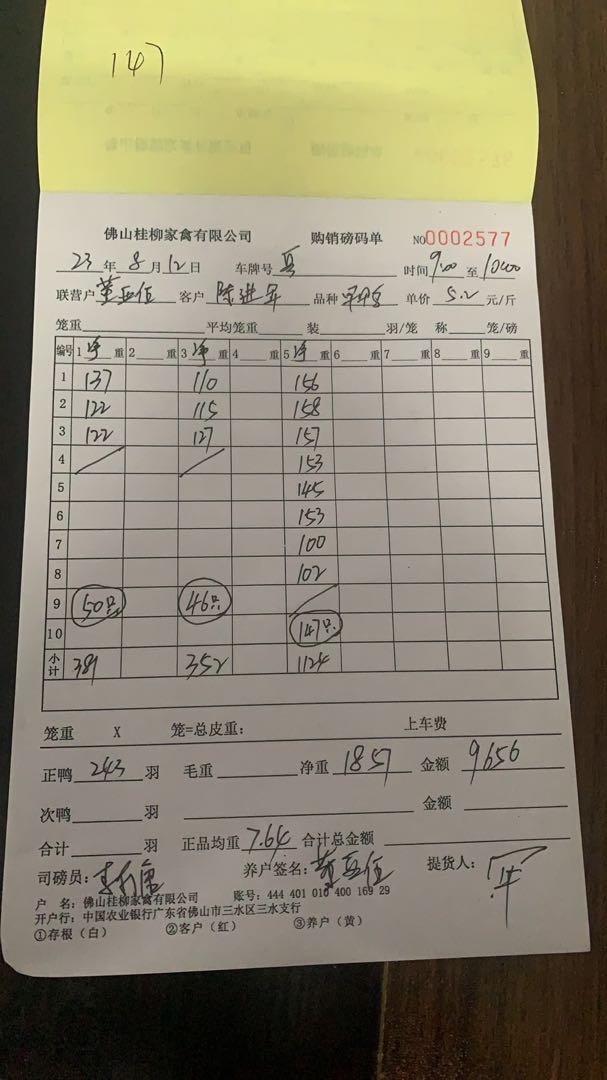 147
佛山桂柳家禽有限公司 购销磅码单 NO0002577
23年8月12日 车牌号 时间9:00至10:00
联营户 董亚伍 客户 陈进军 品种 单价 5.2 元/斤
笼重 平均笼重 装 羽/笼 称 笼/磅
编号 1 净 重 2 重 3 净 重 4 重 5 净 重 6 重 7 重 8 重 9 重
1 137 110 156
2 122 115 158
3 122 127 157
4 153
5 145
6 153
7 100
8 102
9 50只 46只
10 147只
小计 381 352 1124
笼重 X 笼=总皮重: 上车费
正鸭 243 羽 毛重 净重 1857 金额 9656
次鸭 羽 金额
合计 羽 正品均重 7.64 合计总金额
司磅员: 养户签名: 董亚伍 提货人:
户 名: 佛山桂柳家禽有限公司 账号: 444 401 010 400 169 29
开户行: 中国农业银行广东省佛山市三水区三水支行
①存根(白) ②客户(红) ③养户(黄)